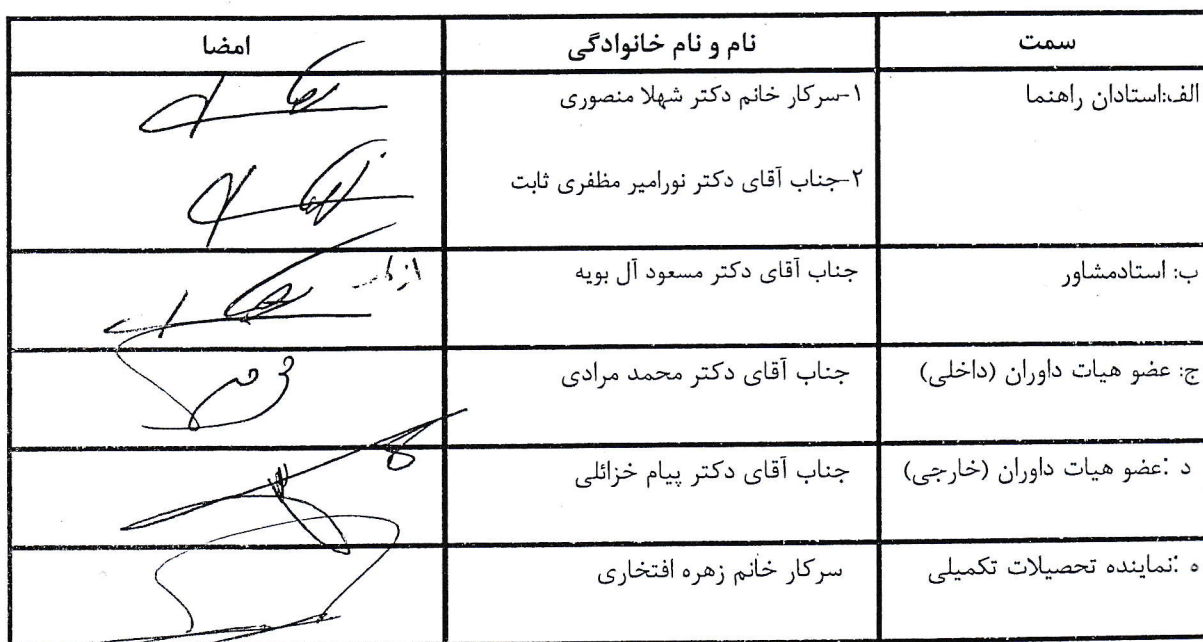 سمت نام و نام خانوادگی امضا
الف:استادان راهنما ۱-سرکار خانم دکتر شهلا منصوری
۲-جناب آقای دکتر نورامیر مظفری ثابت
ب: استادمشاور جناب آقای دکتر مسعود آل بویه
ج: عضو هیات داوران (داخلی) جناب آقای دکتر محمد مرادی
د :عضو هیات داوران (خارجی) جناب آقای دکتر پیام خزائلی
ه :نماینده تحصیلات تکمیلی سرکار خانم زهره افتخاری